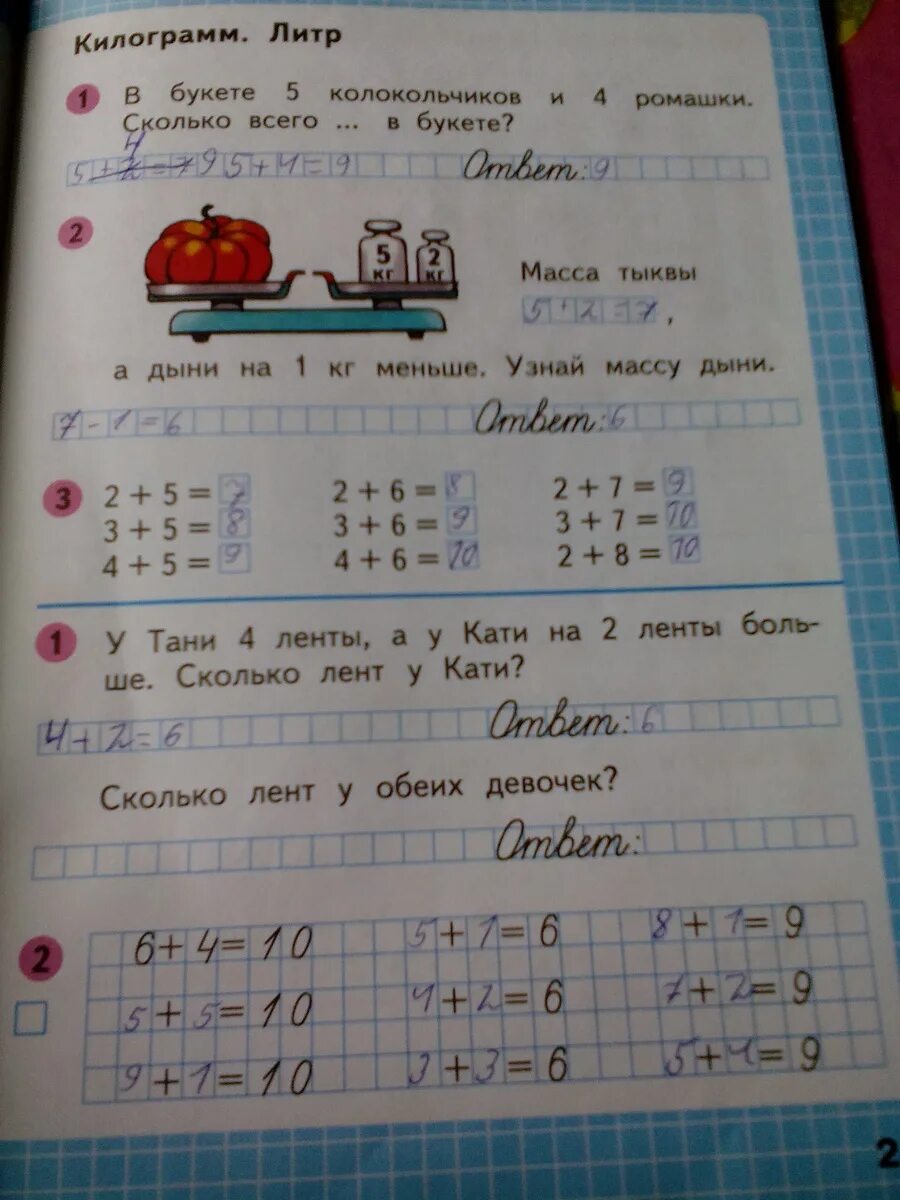 Килограмм. Литр
1 В букете 5 колокольчиков и 4 ромашки.
Сколько всего ... в букете?
4
5+2=7 9 5+4=9 Ответ: 9
2
5 кг 2 кг
Масса тыквы
5+2=7,
а дыни на 1 кг меньше. Узнай массу дыни.
7-1=6 Ответ: 6
3 2 + 5 = 7 2 + 6 = 8 2 + 7 = 9
3 + 5 = 8 3 + 6 = 9 3 + 7 = 10
4 + 5 = 9 4 + 6 = 10 2 + 8 = 10
1 У Тани 4 ленты, а у Кати на 2 ленты боль-
ше. Сколько лент у Кати?
4+2=6 Ответ: 6
Сколько лент у обеих девочек?
Ответ:
2 6+4=10 5+1=6 8+1=9
5+5=10 4+2=6 7+2=9
9+1=10 3+3=6 5+4=9
2